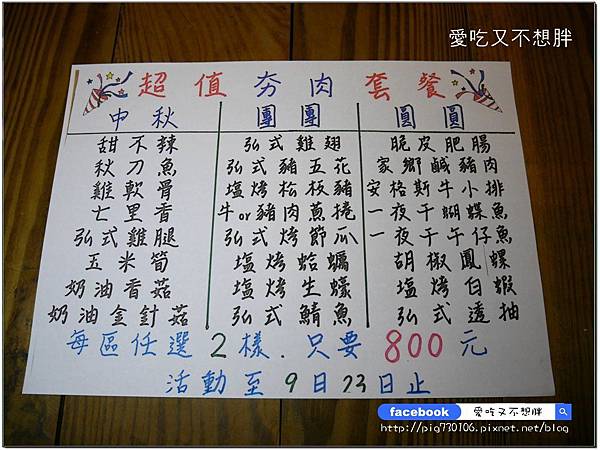 愛吃又不想胖
超值夯肉套餐
中秋 團團 圓圓
甜不辣 弘式雞翅 脆皮肥腸
秋刀魚 弘式豬五花 家鄉鹹豬肉
雞軟骨 塩烤松板豬 安格斯牛小排
七里香 牛or豬肉蔥捲 一夜干蝴蝶魚
弘式雞腿 弘式烤節瓜 一夜干午仔魚
玉米筍 塩烤蛤蠣 胡椒鳳螺
奶油香菇 塩烤生蠔 塩烤白蝦
奶油金針菇 弘式鯖魚 弘式透抽
每區任選2樣.只要800元
活動至9月23日止
facebook 愛吃又不想胖
http://pig770106.pixnet.net/blog